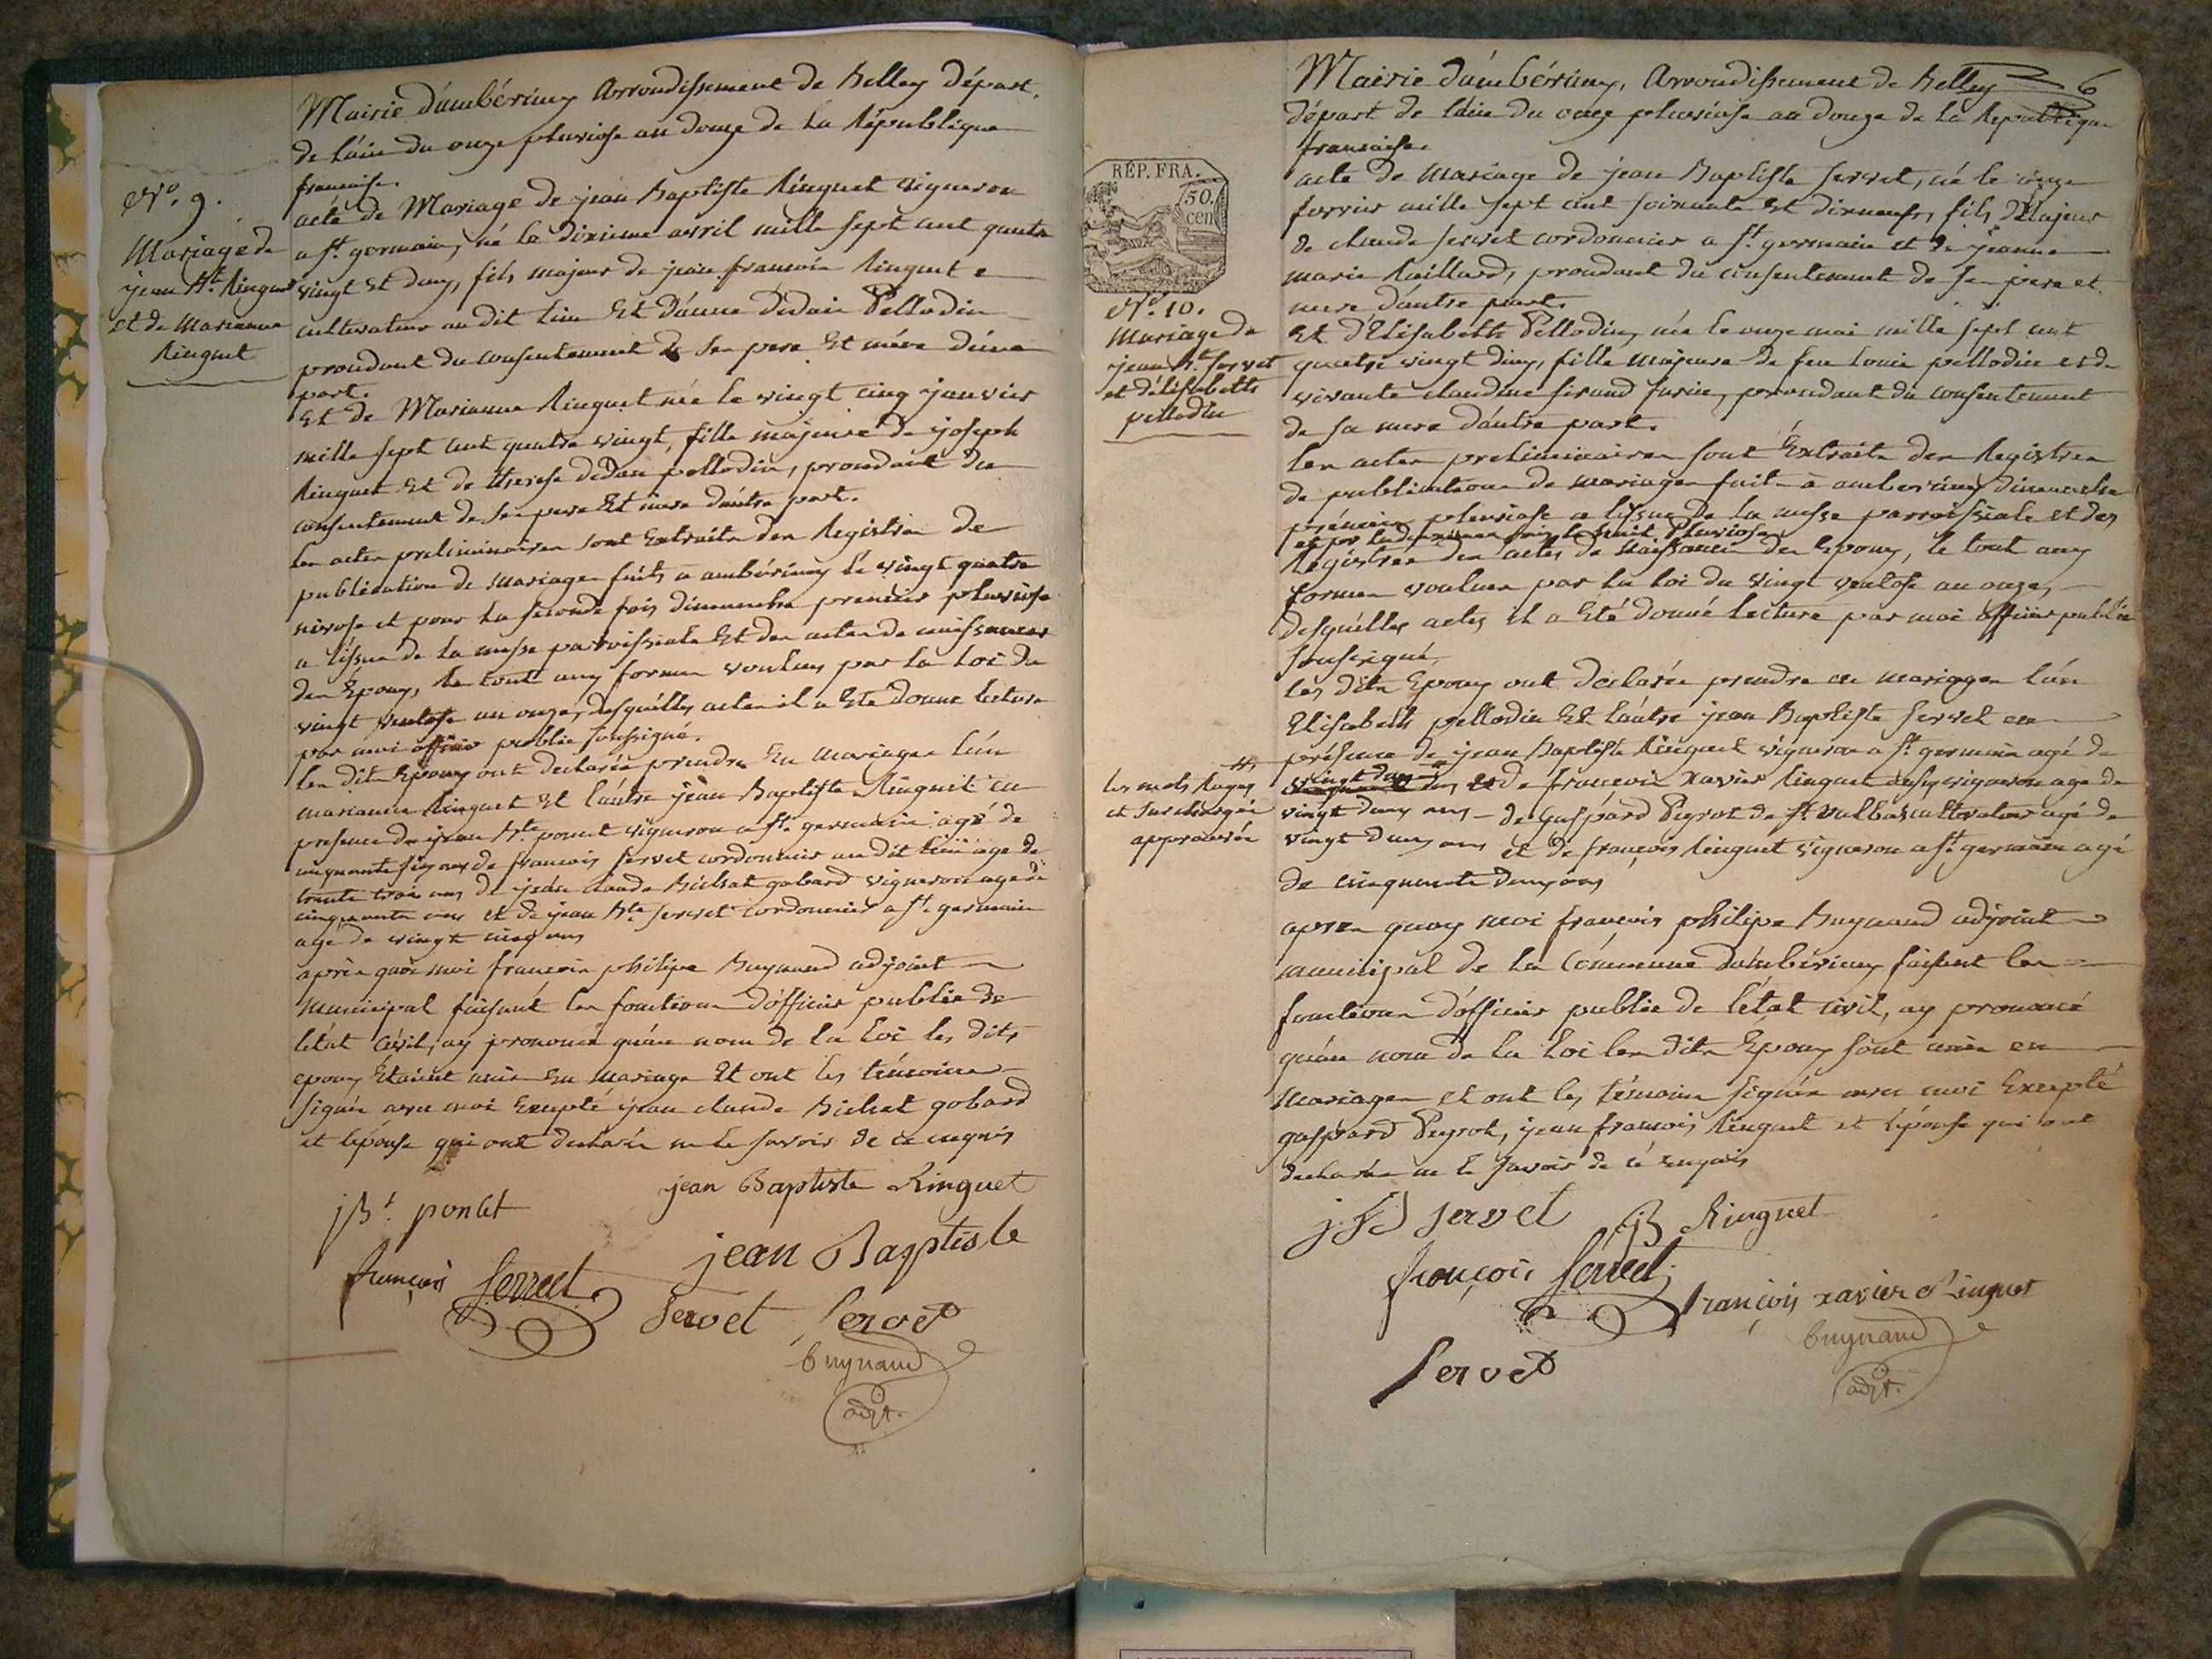 Mairie d'ambérieux Arrondissement de Belley départ.
de l'ain du onze pluviose an douze de la République
francaise.
N°. 9.
Mariage de
jean Bte. Ringuet
et de Marianne
Ringuet
acte de Mariage de jean Baptiste Ringuet vigneron
a St. germain, né le dixieme avril mille sept cent quatre
vingt et deux, fils majeur de jean francois Ringuet
cultivateur au dit lieu Et d'anne dédain Pellodin
procedant du consentement de ses pere Et mére d'une
part.
Et de Marianne Ringuet née le vingt cinq janvier
mille sept cent quatre vingt, fille majeure de joseph
Ringuet Et de therese pellodin, procedant du
consentement de ses pere Et mere d'autre part.
les actes preliminaires sont Extraits des Registres de
publication de mariages faits a ambérieux le vingt quatre
nivose et pour la seconde fois dimanche premier pluviose
a l'issue de la messe parroissiale Et des actes de naissances
des Epoux, le tout aux formes voulues par la loi du
vingt ventose an onze, desquelles actes il a Eté donné lecture
par moi officier public soussigné.
les dits Epoux ont declarés prendre En mariages l'un
marianne Ringuet Et l'autre jean Baptiste Ringuet en
presence de jean Bte. poncet vigneron a St. germain agé de
cinquante ans de francois servet cordonnier au dit lieu agé de
trente trois ans de jean claude Bichat gobard vigneron agé de
cinquante ans et de jean Bte servet cordonnier a St. germain
agé de vingt cinq ans
après quoi moi francois philipe Buynand adjoint
municipal faisant les fonctions d'officier public de
l'état civil, ay prononcé qu'au nom de la loi les dits
epoux Étaient unis En mariage Et ont les témoins
signés avec moi Excepté jean claude Bichat gobard
et l'épouse qui ont declarés ne le savoir de ce enquis
jean Baptiste Ringuet
jBt. poncet
jean Baptiste
françois Servet
Servet Servet
Buynand
adjt.
Mairie d'ambérieux, Arrondissement de Belley 6
départ de l'ain du onze pluviose an douze de la Republique
francaise.
RÉP. FRA.
50.
cen
N°. 10.
Mariage de
jean Bt. servet
et d'élisabeth
pellodin
acte de Mariage de jean Baptiste servet, né le onze
fevrier mille sept cent soixante Et dixneuf, fils Majeur
de claude servet cordonnier a St. germain et de jeanne
marie Raillard, procedant du consentement de ses pere et
mere d'autre part.
Et d'Elisabeth Pellodin, née le onze mai mille sept cent
quatre vingt deux, fille majeure de feu louis pellodin et de
vivante claudine, procedant du consentement
de sa mere d'autre part.
les actes preliminaires sont Extraits des Registres
de publications de mariages faits à ambérieux dimanche
premier pluviose a l'issue de la messe parroissiale et des
et pour la deuxieme fois le huit Pluviose
Régistres des actes de Naissances des Epoux, le tout aux
formes voulues par la loi du vingt ventose an onze,
desquelles actes il a Eté donné lecture par moi officier public
soussigné,
les dits Epoux ont declarés prendre en mariages l'un
Elisabeth pellodin Et l'autre jean Baptiste servet en
présence de jean Baptiste Ringuet vigneron a St. germain agé de
les mots Rayés
et surchargés
approuvés
vingt deux ans de francois xavier Ringuet vigneron agé de
vingt deux ans de Gaspard Peyrot de St. Vulbas cultivateur agé de
vingt deux ans et de françois Ringuet vigneron a St. germain agé
de cinquante deux ans
apres quoy moi francois philipe Buynand adjoint
municipal de la Commune d'ambérieux faisant les
fonctions d'officier public de l'état civil, ay prononcé
qu'au nom de la loi les dits Epoux sont unis en
mariages et ont les témoins signés avec moi Excepté
gaspard Peyrot, jean francois Ringuet et l'épouse qui ont
declarés ne le savoir de ce enquis
jB servet jB Ringuet
françois Servet
françois xavier Ringuet
Servet
Buynand
adjt.